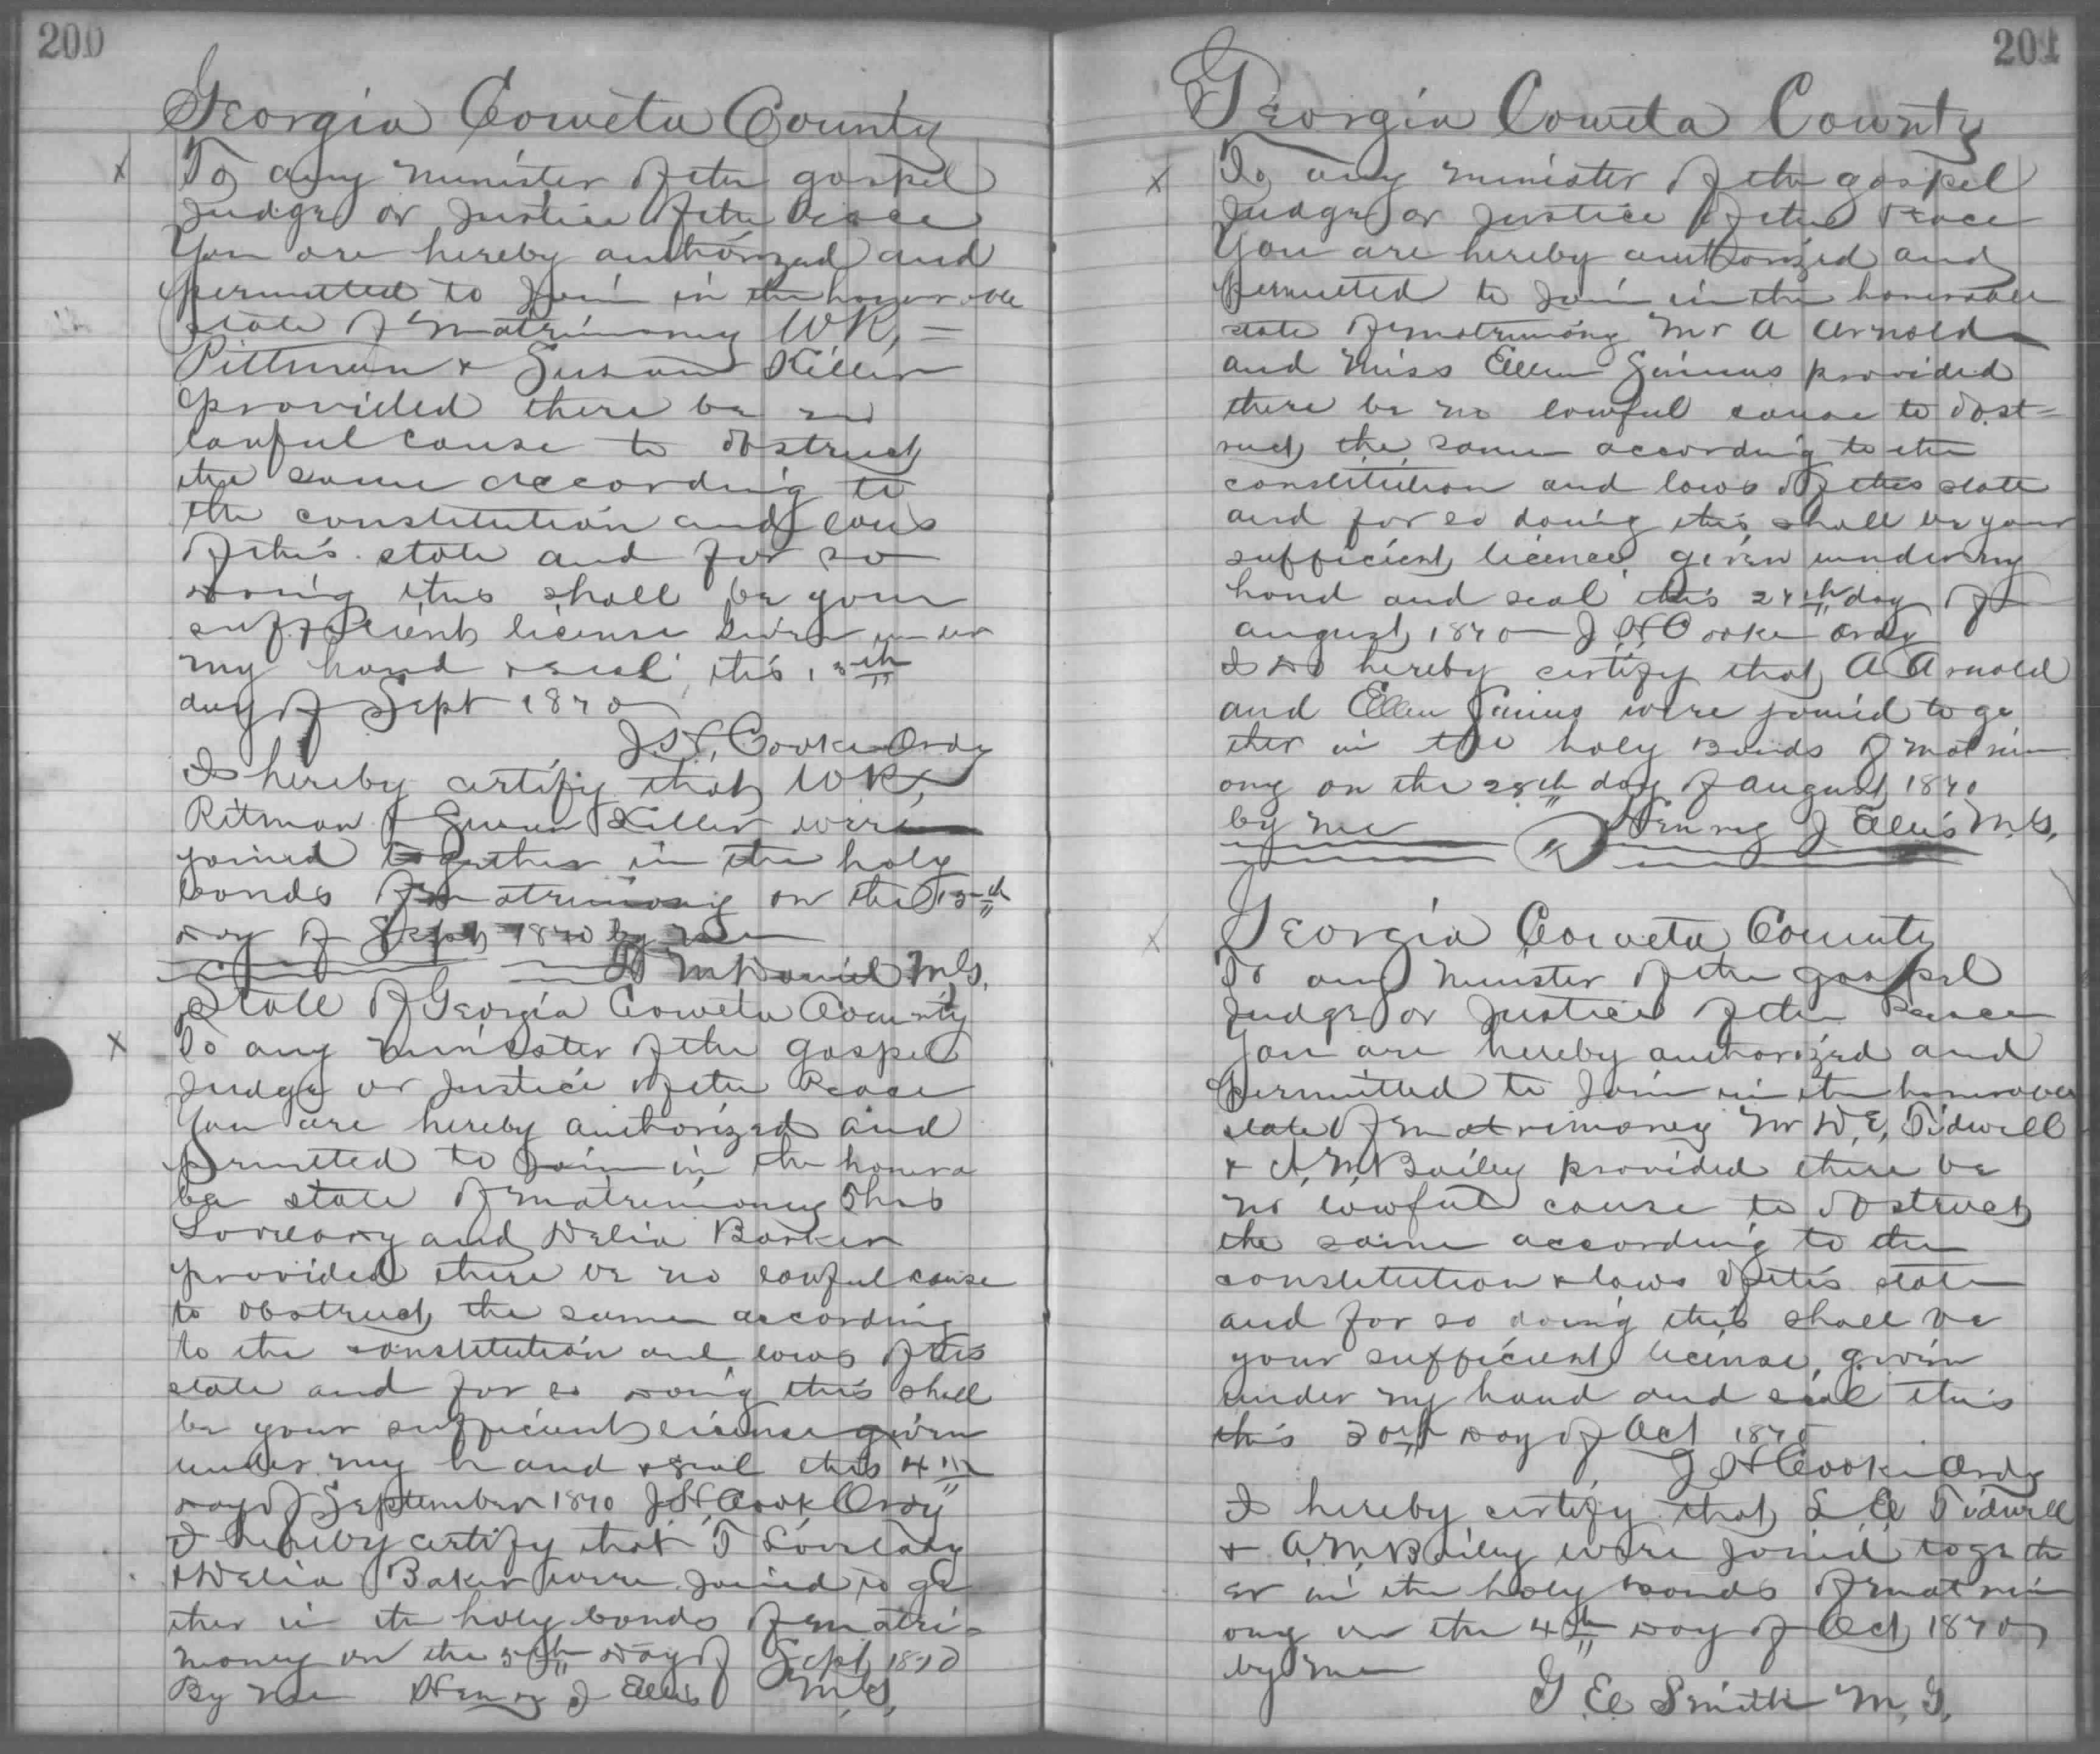 200
Georgia Coweta County
To any minister of the gospel
Judge or Justice of the Peace
You are hereby authorized and
permitted to Join in the honorable
state of matrimony W R, =
Pittman & Susan Keller
provided there be no
lawful cause to obstruct
the same according to
the constitution and laws
of this state and for so
doing this shall be your
sufficient license Given under
my hand & seal this 13th
day of Sept 1870
J H, Cooke Ordy
I hereby certify that W R,
Pitman & Susan Keller were
joined together in the holy
bonds of matrimony on the 13th
day of Sept 1870 by me
McDaniel M.G.
State of Georgia Coweta County
To any minister of the gospel
Judge or Justice of the Peace
You are hereby authorized and
permitted to Join in the honora
be state of matrimony Thos
Lovelary and Delia Barker
provided there be no lawful cause
to obstruct the same according
to the constitution and laws of this
state and for so doing this shall
be your sufficient license given
under my hand & seal this 4th
day of September 1870 J H, Cook Ordy
I hereby certify that T Lovelady
& Delia Baker were Joined to ge
ther in the holy bonds of matri-
mony on the 5th day of Sept 1870
By me Henry J Ellis M,G,
201
Georgia Coweta County
To any minister of the gospel
Judge or Justice of the Peace
You are hereby authorized and
permitted to Join in the honorable
state of matrimony Mr A Arnold
and Miss Ellen provided
there be no lawful cause to obst=
ruct the same according to the
constitution and laws of this state
and for so doing this shall be your
sufficient licence given under my
hand and seal this 27th day of
august 1870 J H Cooke Ordy
I do hereby certify that A Arnold
and Ellen were joined to ge
ther in the holy Bonds of matrim
ony on the 28th day of august 1870
by me Henry J Ellis M.G.
Georgia Coweta County
To any minister of the gospel
Judge or Justice of the Peace
You are hereby authorized and
permitted to Join in the honorable
state of matrimoney Mr D, E, Tidwell
& A, M, Bailey provided there be
no lawful cause to obstruct
the same according to the
constitution & laws of this state
and for so doing this shall be
your sufficient license, given
under my hand and seal this
this 3rd Day of Oct 1870
J H Cooke Ordy
I hereby certify that E Tidwell
& A, M, Bailey were Joined togeth
er in the holy bonds of matrim
ony on the 4th Day of Oct 1870
by me
G. E. Smith M, G,